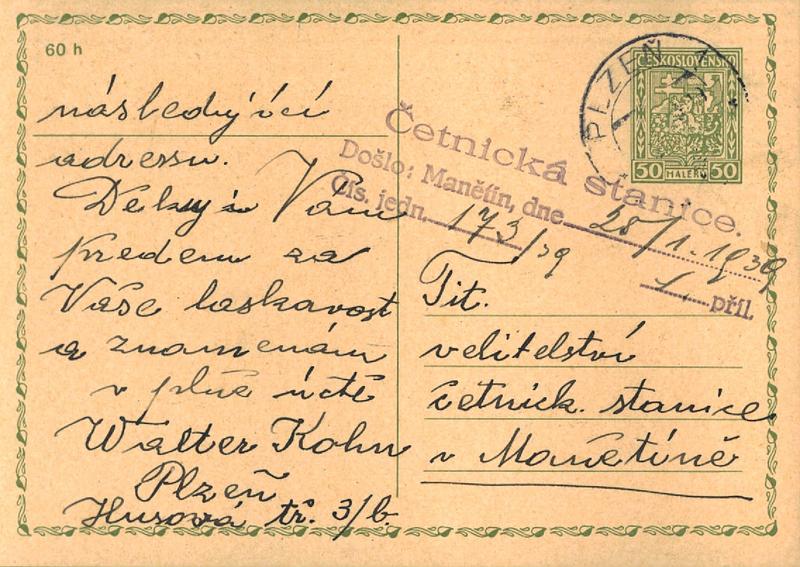 60 h
následující
adressu.
Děkuji Vám
předem za
Vaše laskavost
a znamenám
v plné úctě
Walter Kohn
Plzeň
Husová tř. 3/b.
PLZEŇ 1
ČESKOSLOVENSKO
50 HALÉŘŮ 50
Četnická stanice.
Došlo: Manětín, dne 28/1. 1939
Čís. jedn. 173/39
1 příl.
Tit.
velitelství
četnick. stanice
v Manětíně